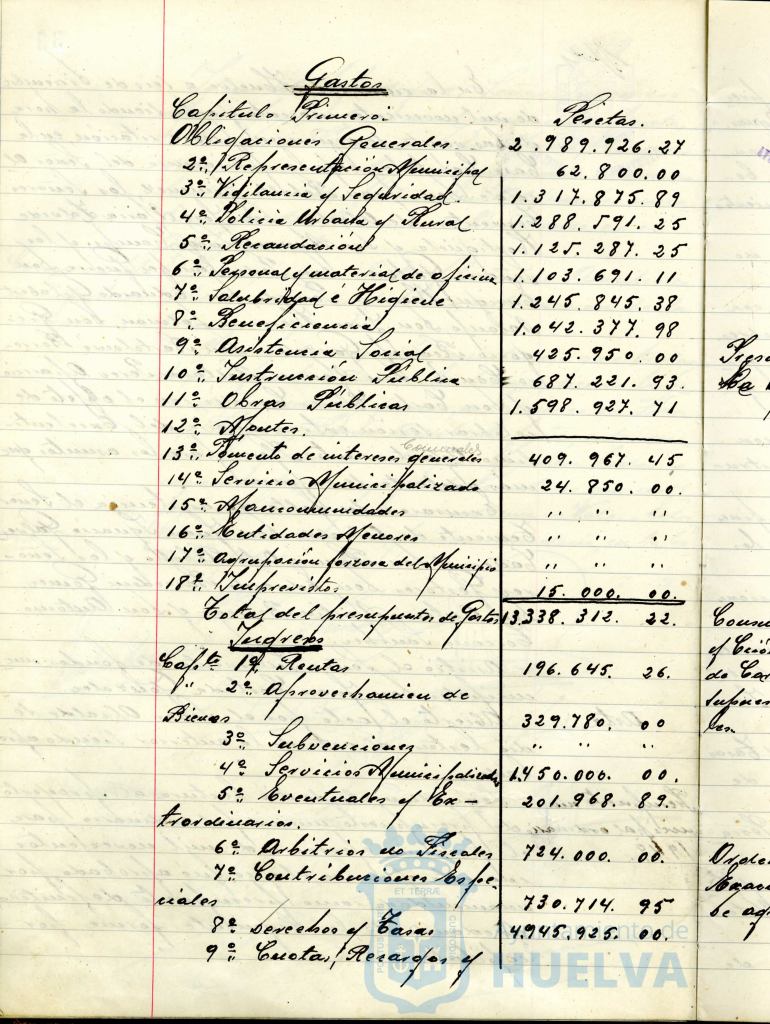 Gastos
Capitulo Primero. Pesetas.
Obligaciones Generales 2.989.926.27
2º Representación Municipal 62.800.00
3º Vigilancia y Seguridad. 1.317.875.89
4º Policia Urbana y Rural 1.288.591.25
5º Recaudación 1.125.287.25
6º Personal y material de oficina 1.103.691.11
7º Salubridad é Higiene 1.245.845.38
8º Beneficiencia 1.042.377.98
9º Asistencia Social 425.950.00
10º Instrucción Pública 687.221.93.
11º Obras Públicas 1.598.927.71
12º Montes.
13º Fomento de intereses generales 409.967.45
14º Servicio Municipalizado 24.850.00.
15º Mancomunidades " " "
16º Entidades Menores " " "
17º Agrupación forzosa del Municipio " " "
18º Imprevistos 15.000.00.
Total del presupuestos de Gastos 13.338.312.22.
Ingresos
Capto 1º Rentas 196.645.26.
" 2º Aprovechamien de
Bienes 329.780.00
3º Subvenciones " " "
4º Servicios Municipalizados 1.450.000.00.
5º Eventuales y Ex-
traordinarios. 201.968.89.
6º Arbitrios no Fiscales 724.000.00.
7º Contribuciones Espe-
ciales 730.714.95
8º Derechos y Tasas 4.945.925.00.
9º Cuotas, Recargos y
Ayuntamiento de
HUELVA